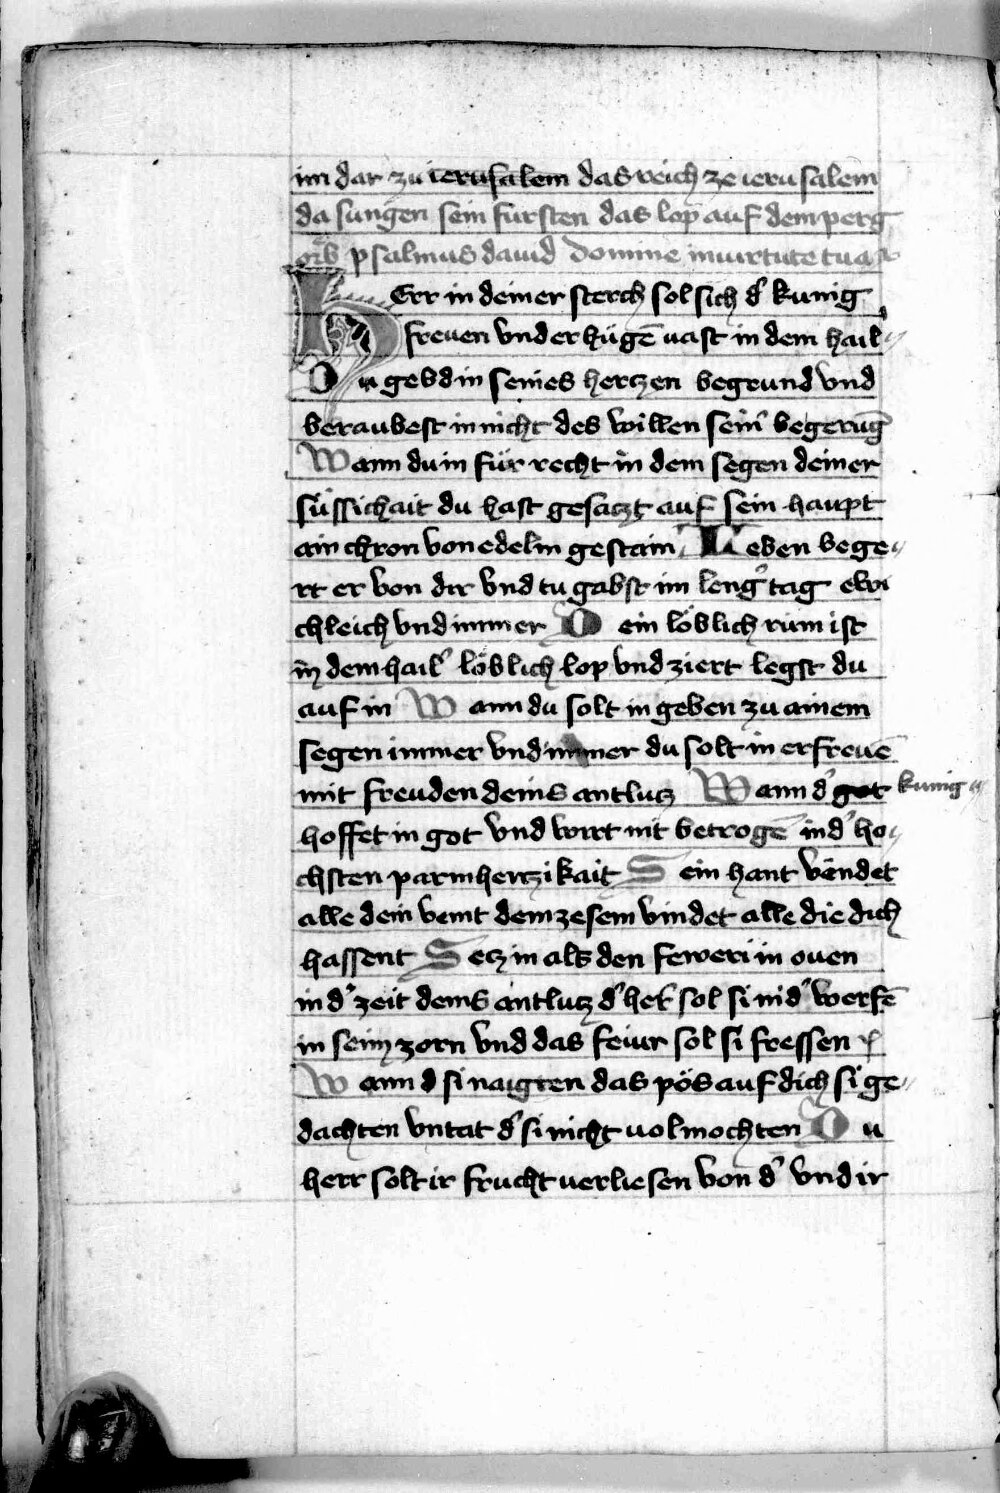 im dar zu ierusalem das reich ze ierusalem
da sungen sein fursten das lop auf dem perg
psalmus dauid Domine in uirtute tua
HErr in deiner sterch sol sich d̓ kunig
freuen vnd er hügē uast in dem hail
Du gebd in seines herczen begrund vnd
beraubest in nicht des willen sein̓ begeruḡ
Wann du in für recht in dem segen deiner
süssichait du hast gesaczt auf sein haupt
ain chron von edelm gestain Leben bege〃
rt er von dir vnd tu gabst im leng̓ tag ewi
chleich vnd immer Dein löblich rum ist
in dem hail̓ löblich lop vnd ziert legst du
auf in Wann du solt in geben zu ainem
segen immer vnd immer du solt in erfreuē
mit freuden deins antlucz Wann d̓ got kunig
hoffet in got vnd wirt nit betrogē in d̓ ho〃
chsten parmherczikait Sein hant vendet
alle dein veint dein zesem vindet alle die dich
hassent Secz in als den feweriin ouen
in d̓ zeit deins antlucz d̓ her̓ sol si nid̓ werfē
in seim zorn vnd das feiur sol si fressen
Wann d si naigten das pös auf dich si ge〃
dachten vntat d̓ si nicht uolmochten Du
herr solt ir frucht uerliesen von d̓ vnd ir